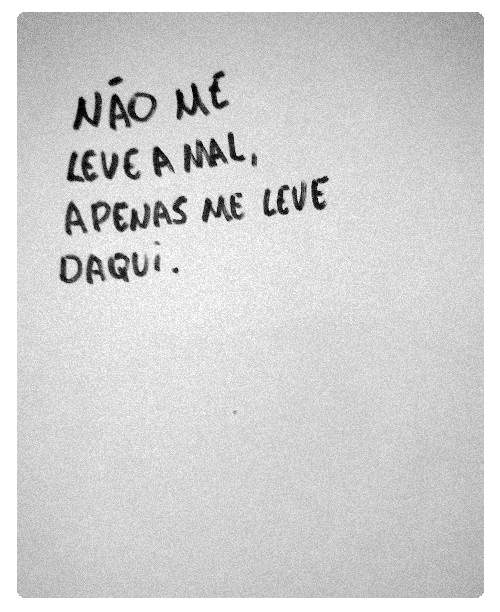 NÃO ME
LEVE A MAL,
APENAS ME LEVE
DAQUi.